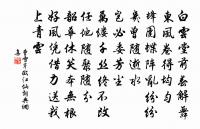 白雲堂前春解舞
東風卷得均勻
蜂圍蝶陣亂紛紛
幾曾隨逝水
豈必委芳塵
萬縷千絲終不改
任他隨聚隨分
韶華休笑本無根
好風憑借力送我
上青雲
曹雪芹 臨江仙